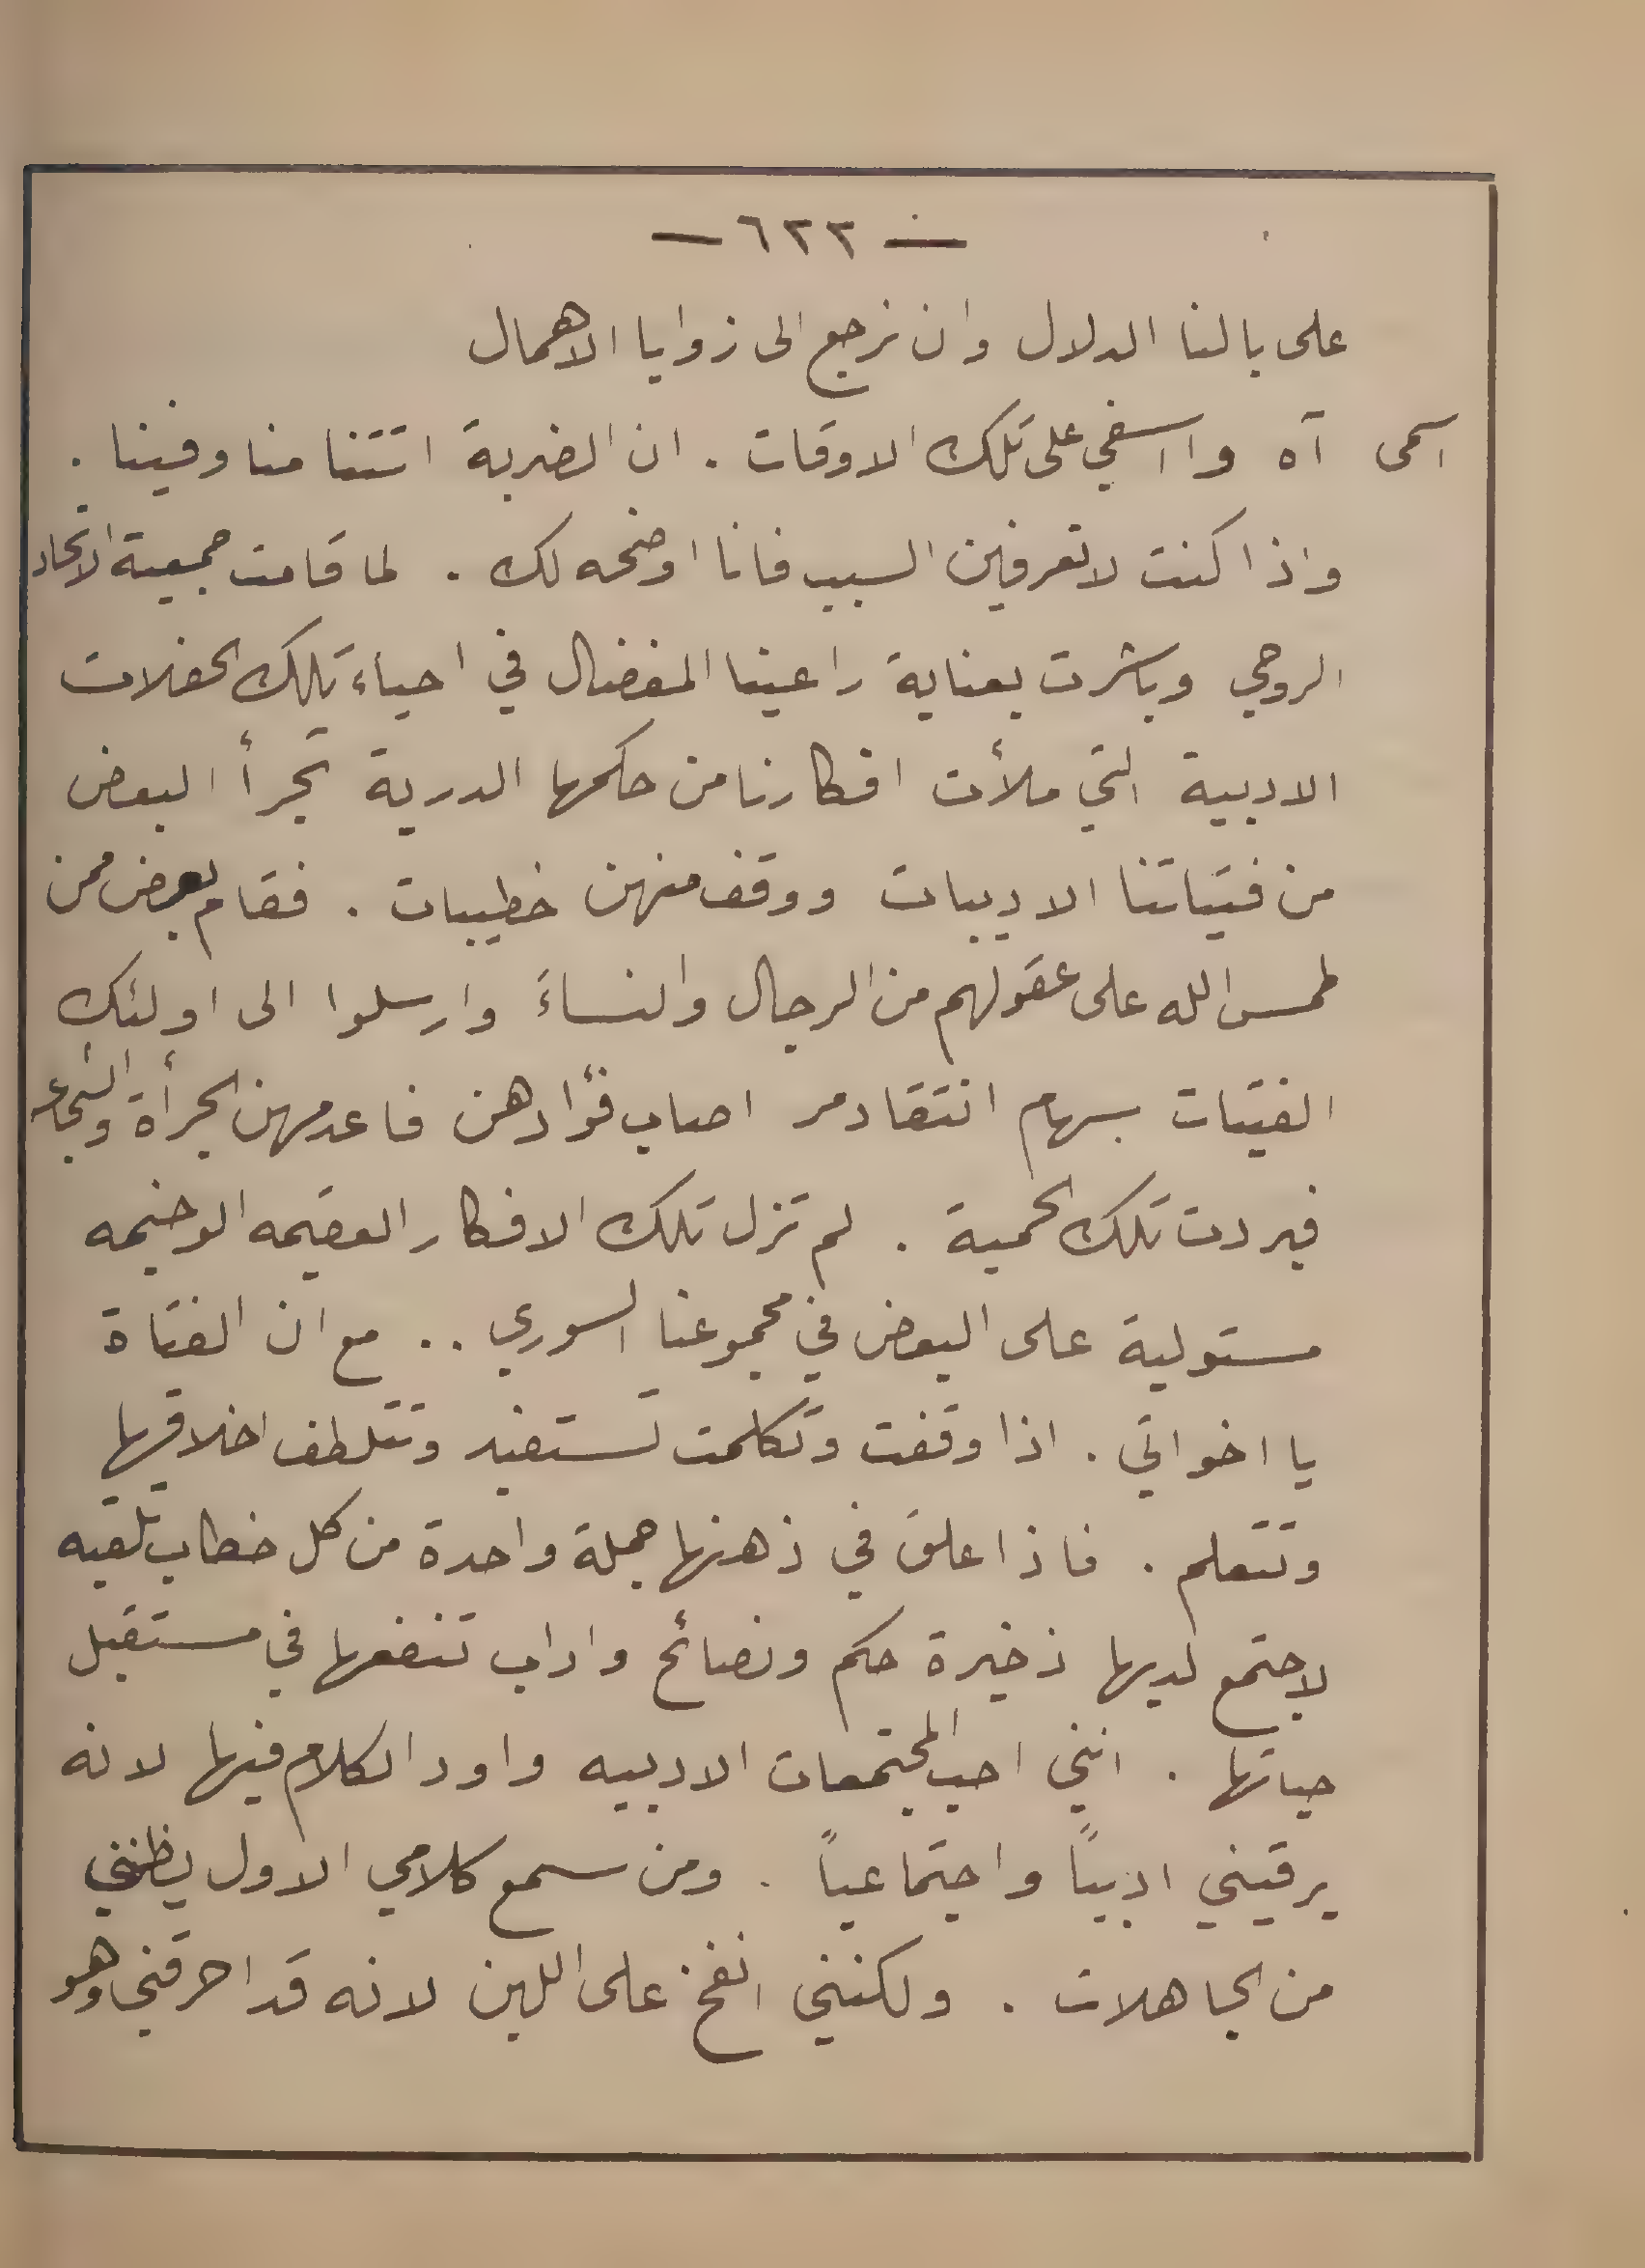 — ٦٢٢ —
على بالنا الدلال وان نرجع الى زوايا الاهمال
اسمى آه وا اسفي على تلك الاوقات . ان الضربة اتتنا منا وفينا .
واذا كنت لا تعرفين السبب فانا اوضحه لك . لما قامت جمعية الاتحاد
الروحي وباشرت بعناية راعينا المفضال في احياء تلك الحفلات
الادبية التي ملأت افكارنا من حكمها الدرية تجرأ البعض
من فتياتنا الاديبات ووقف منهن خطيبات . فقام بعض ممن
طمس الله على عقولهم من الرجال والنساء وارسلوا الى اولئك
الفتيات بسهام انتقاد مر اصاب فؤادهن فاعدمهن الجرأة والشجاعه
فبردت تلك الحمية . لم تزل تلك الافكار العقيمه الوخيمه
مستولية على البعض في مجموعنا السوري .. مع ان الفتاة
يا اخواتي . اذا وقفت وتكلمت تستفيد وتتلطف اخلاقها
وتتعلم . فاذا علق في ذهنها جملة واحدة من كل خطاب تلقيه
لاجتمع لديها ذخيرة حكم ونصائح واداب تنفعها في مستقبل
حياتها . انني احب المجتمعات الادبيه واود الكلام فيها لانه
يرقيني ادبياً واجتماعياً . ومن سمع كلامي الاول يظنني
من الجاهلات . ولكنني انفخ على اللبن لانه قد احرقني وهو